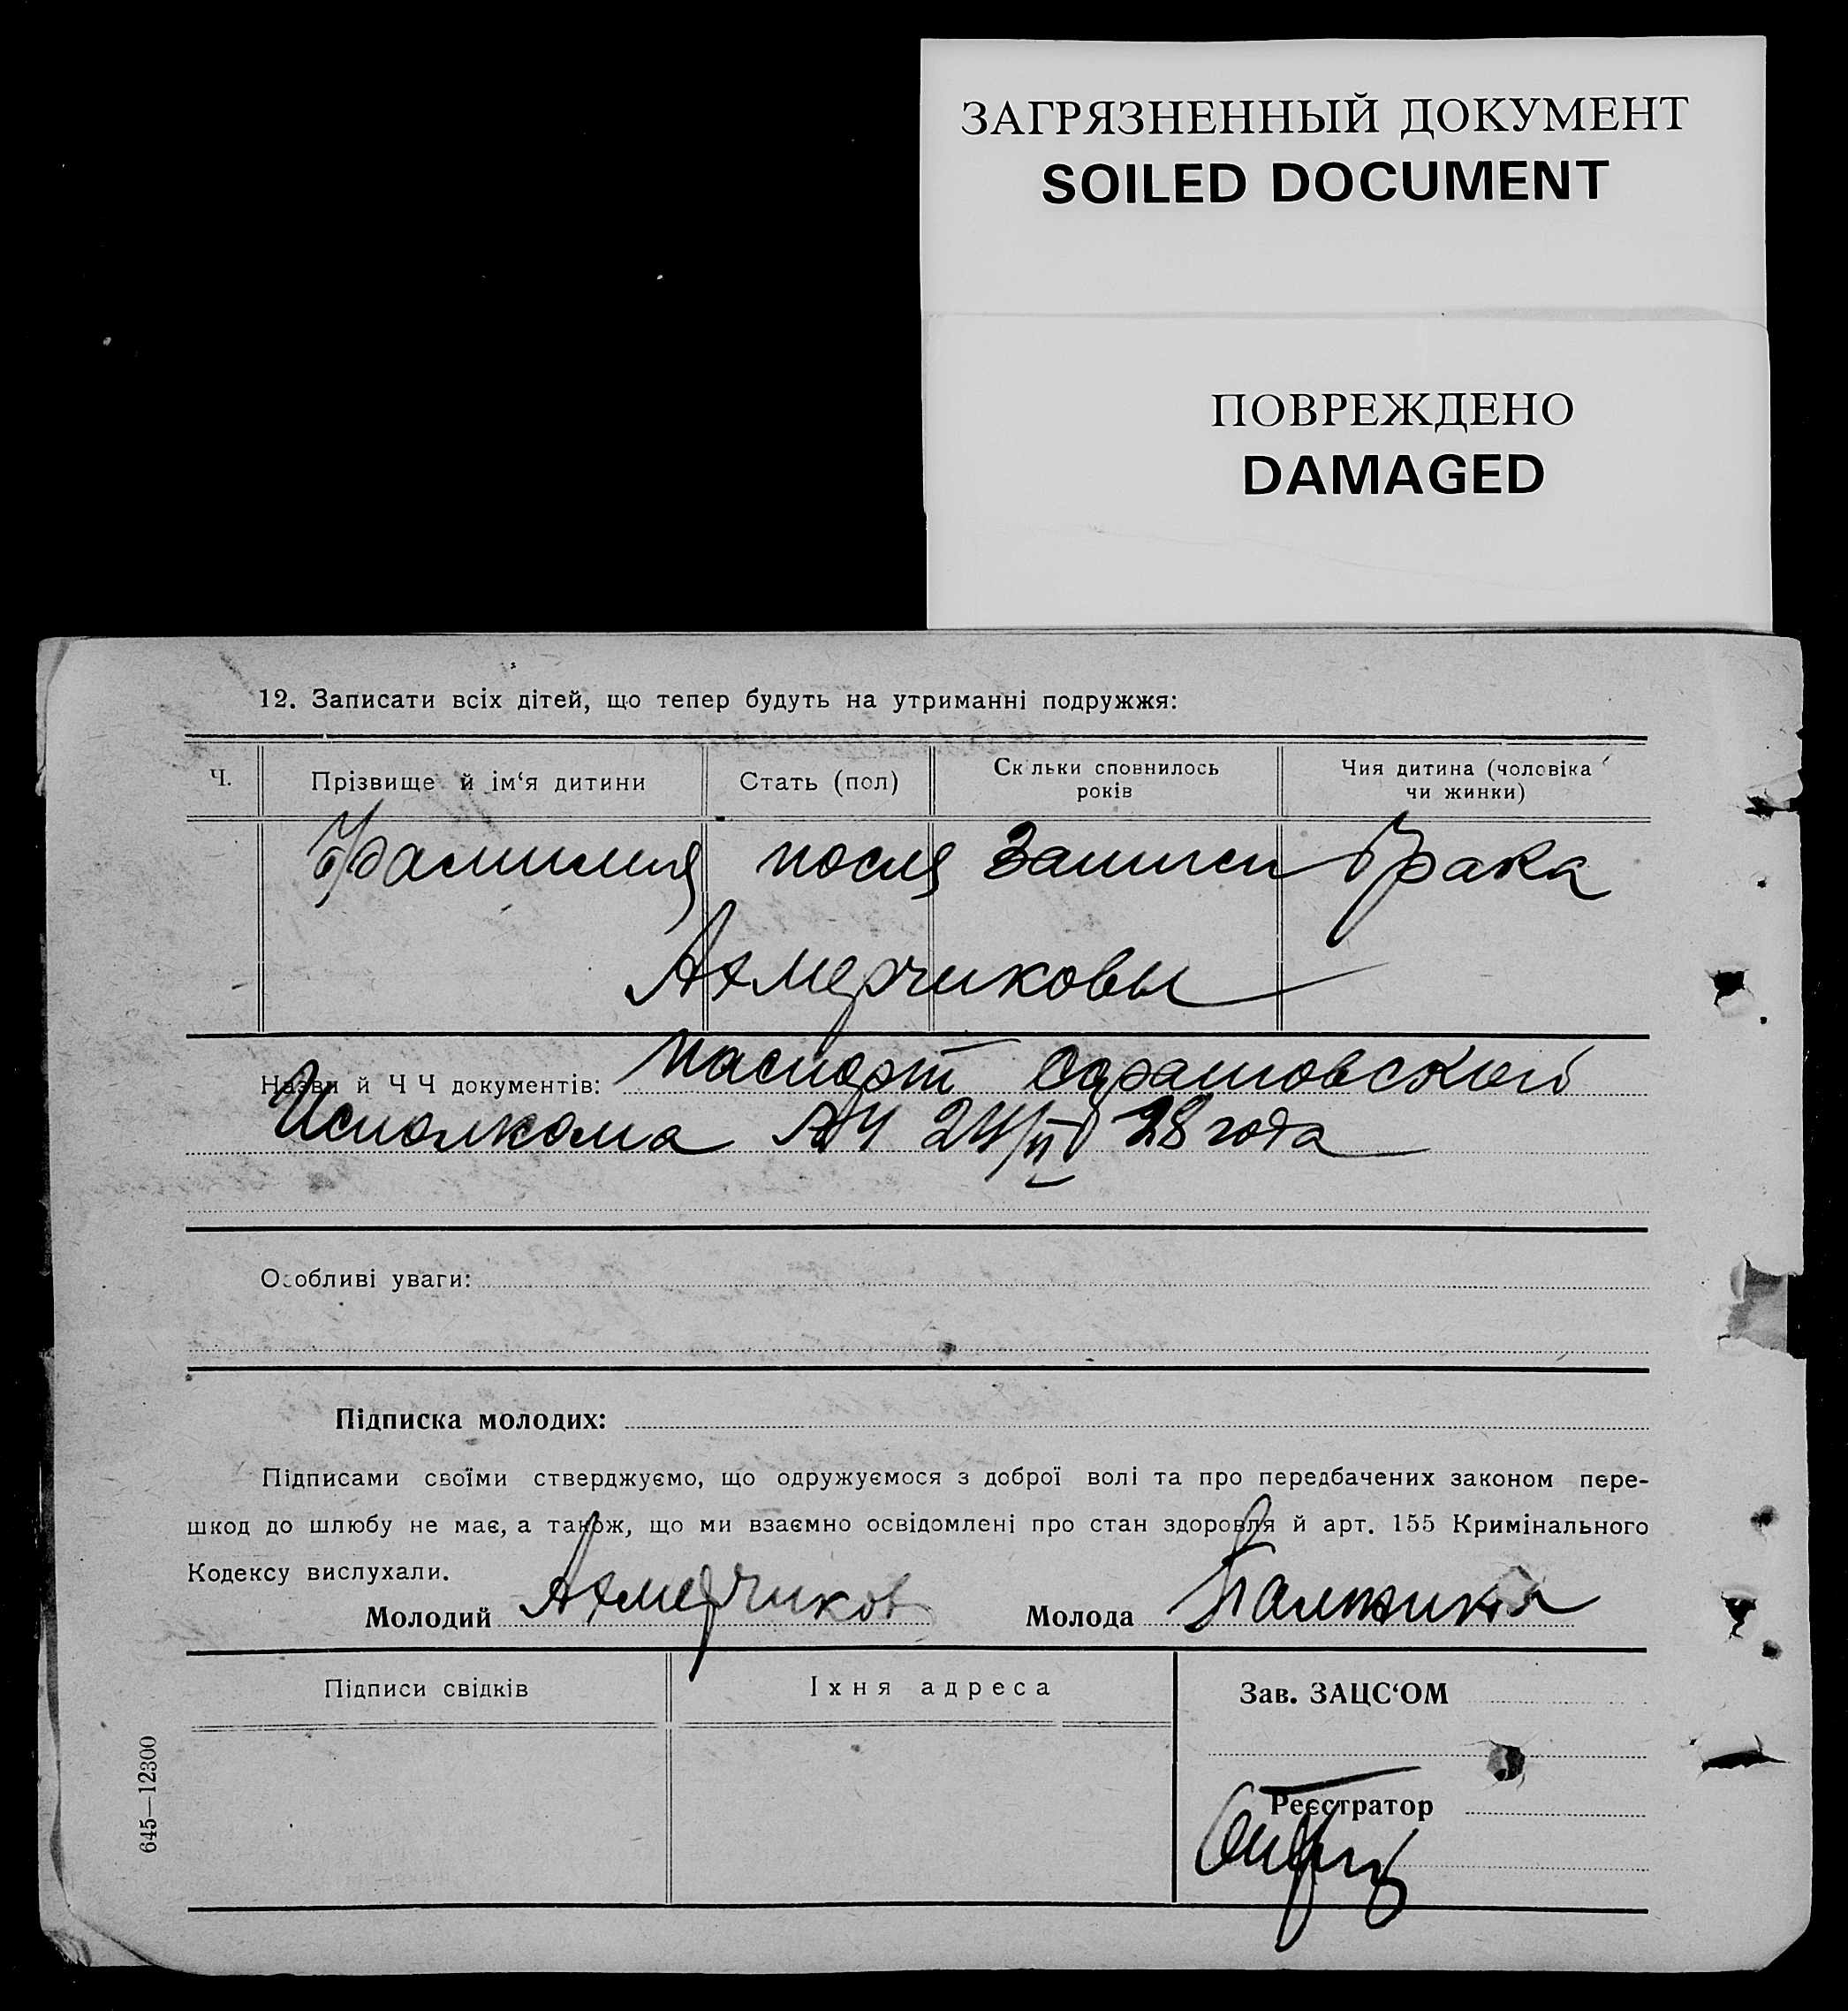 ЗАГРЯЗНЕННЫЙ ДОКУМЕНТ
SOILED DOCUMENT
ПОВРЕЖДЕНО
DAMAGED
12. Записати всіх дітей, що тепер будуть на утриманні подружжя:
Ч. Прізвище й ім‘я дитини Стать (пол) Скільки сповнилось років Чия дитина (чоловіка чи жинки)
Фамилия после записи брака
Ахмерчиковы
Назви й Ч Ч документів: паспорт
Исполкома 28 года
Особливі уваги:
Підписка молодих:
Підписами своїми стверджуємо, що одружуємося з доброї волі та про передбачених законом пере-
шкод до шлюбу не має, а також, що ми взаємно освідомлені про стан здоровля й арт. 155 Кримінального
Кодексу вислухали.
Молодий Ахмерчиков Молода
Підписи свідків Їхня адреса Зав. ЗАЦС‘ОМ
Реєстратор
645—12300